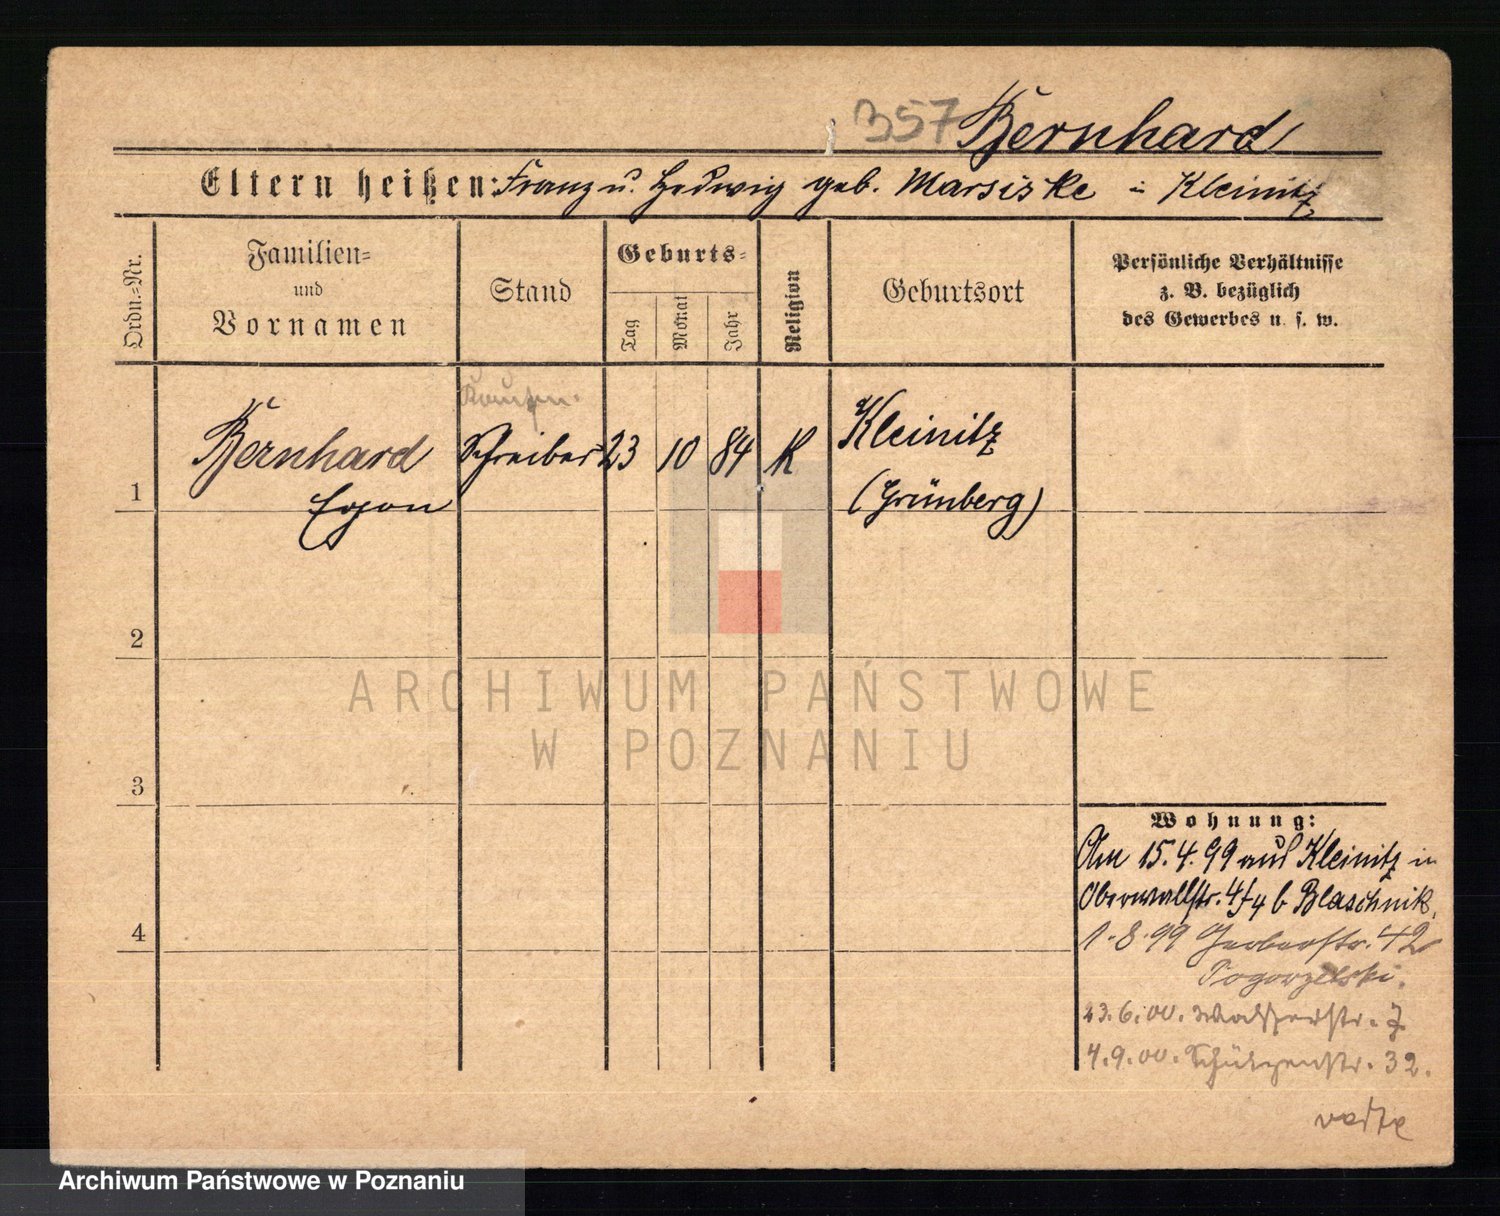 357 Bernhard
Eltern heißen: Franz u. Hedwig geb. Marsiske in Kleinitz
Ordn.-Nr.
Familien-
und
Vornamen
Stand
Geburts-
Tag
Monat
Jahr
Religion
Geburtsort
Persönliche Verhältnisse
z. B. bezüglich
des Gewerbes u. s. w.
1
Bernhard
Egon
Schreiber
23
10
84
K
Kleinitz
(Grünberg)
2
ARCHIWUM PAŃSTWOWE
W POZNANIU
3
4
Wohnung:
Am 15.4.99 aus Kleinitz in
Oberwallstr. 4/4 b Blaschnik.
1.8.99 Gerberstr. 42
Pogorzelski.
23.6.00. 7
4.9.00. Schützenstr. 32.
Archiwum Państwowe w Poznaniu